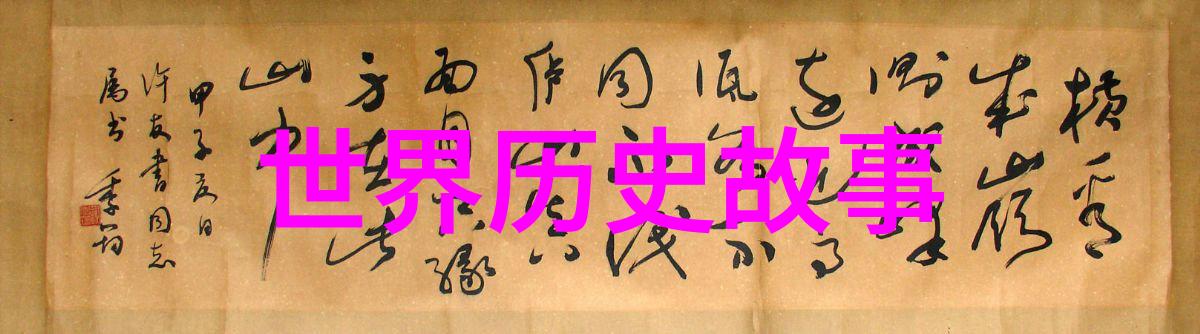 世界历史故事
横看
成嶺
側成峰
远近高
低各不
同不識
庐山真
面目只緣
身在此
山中
甲子夏日
许友書同志
属书